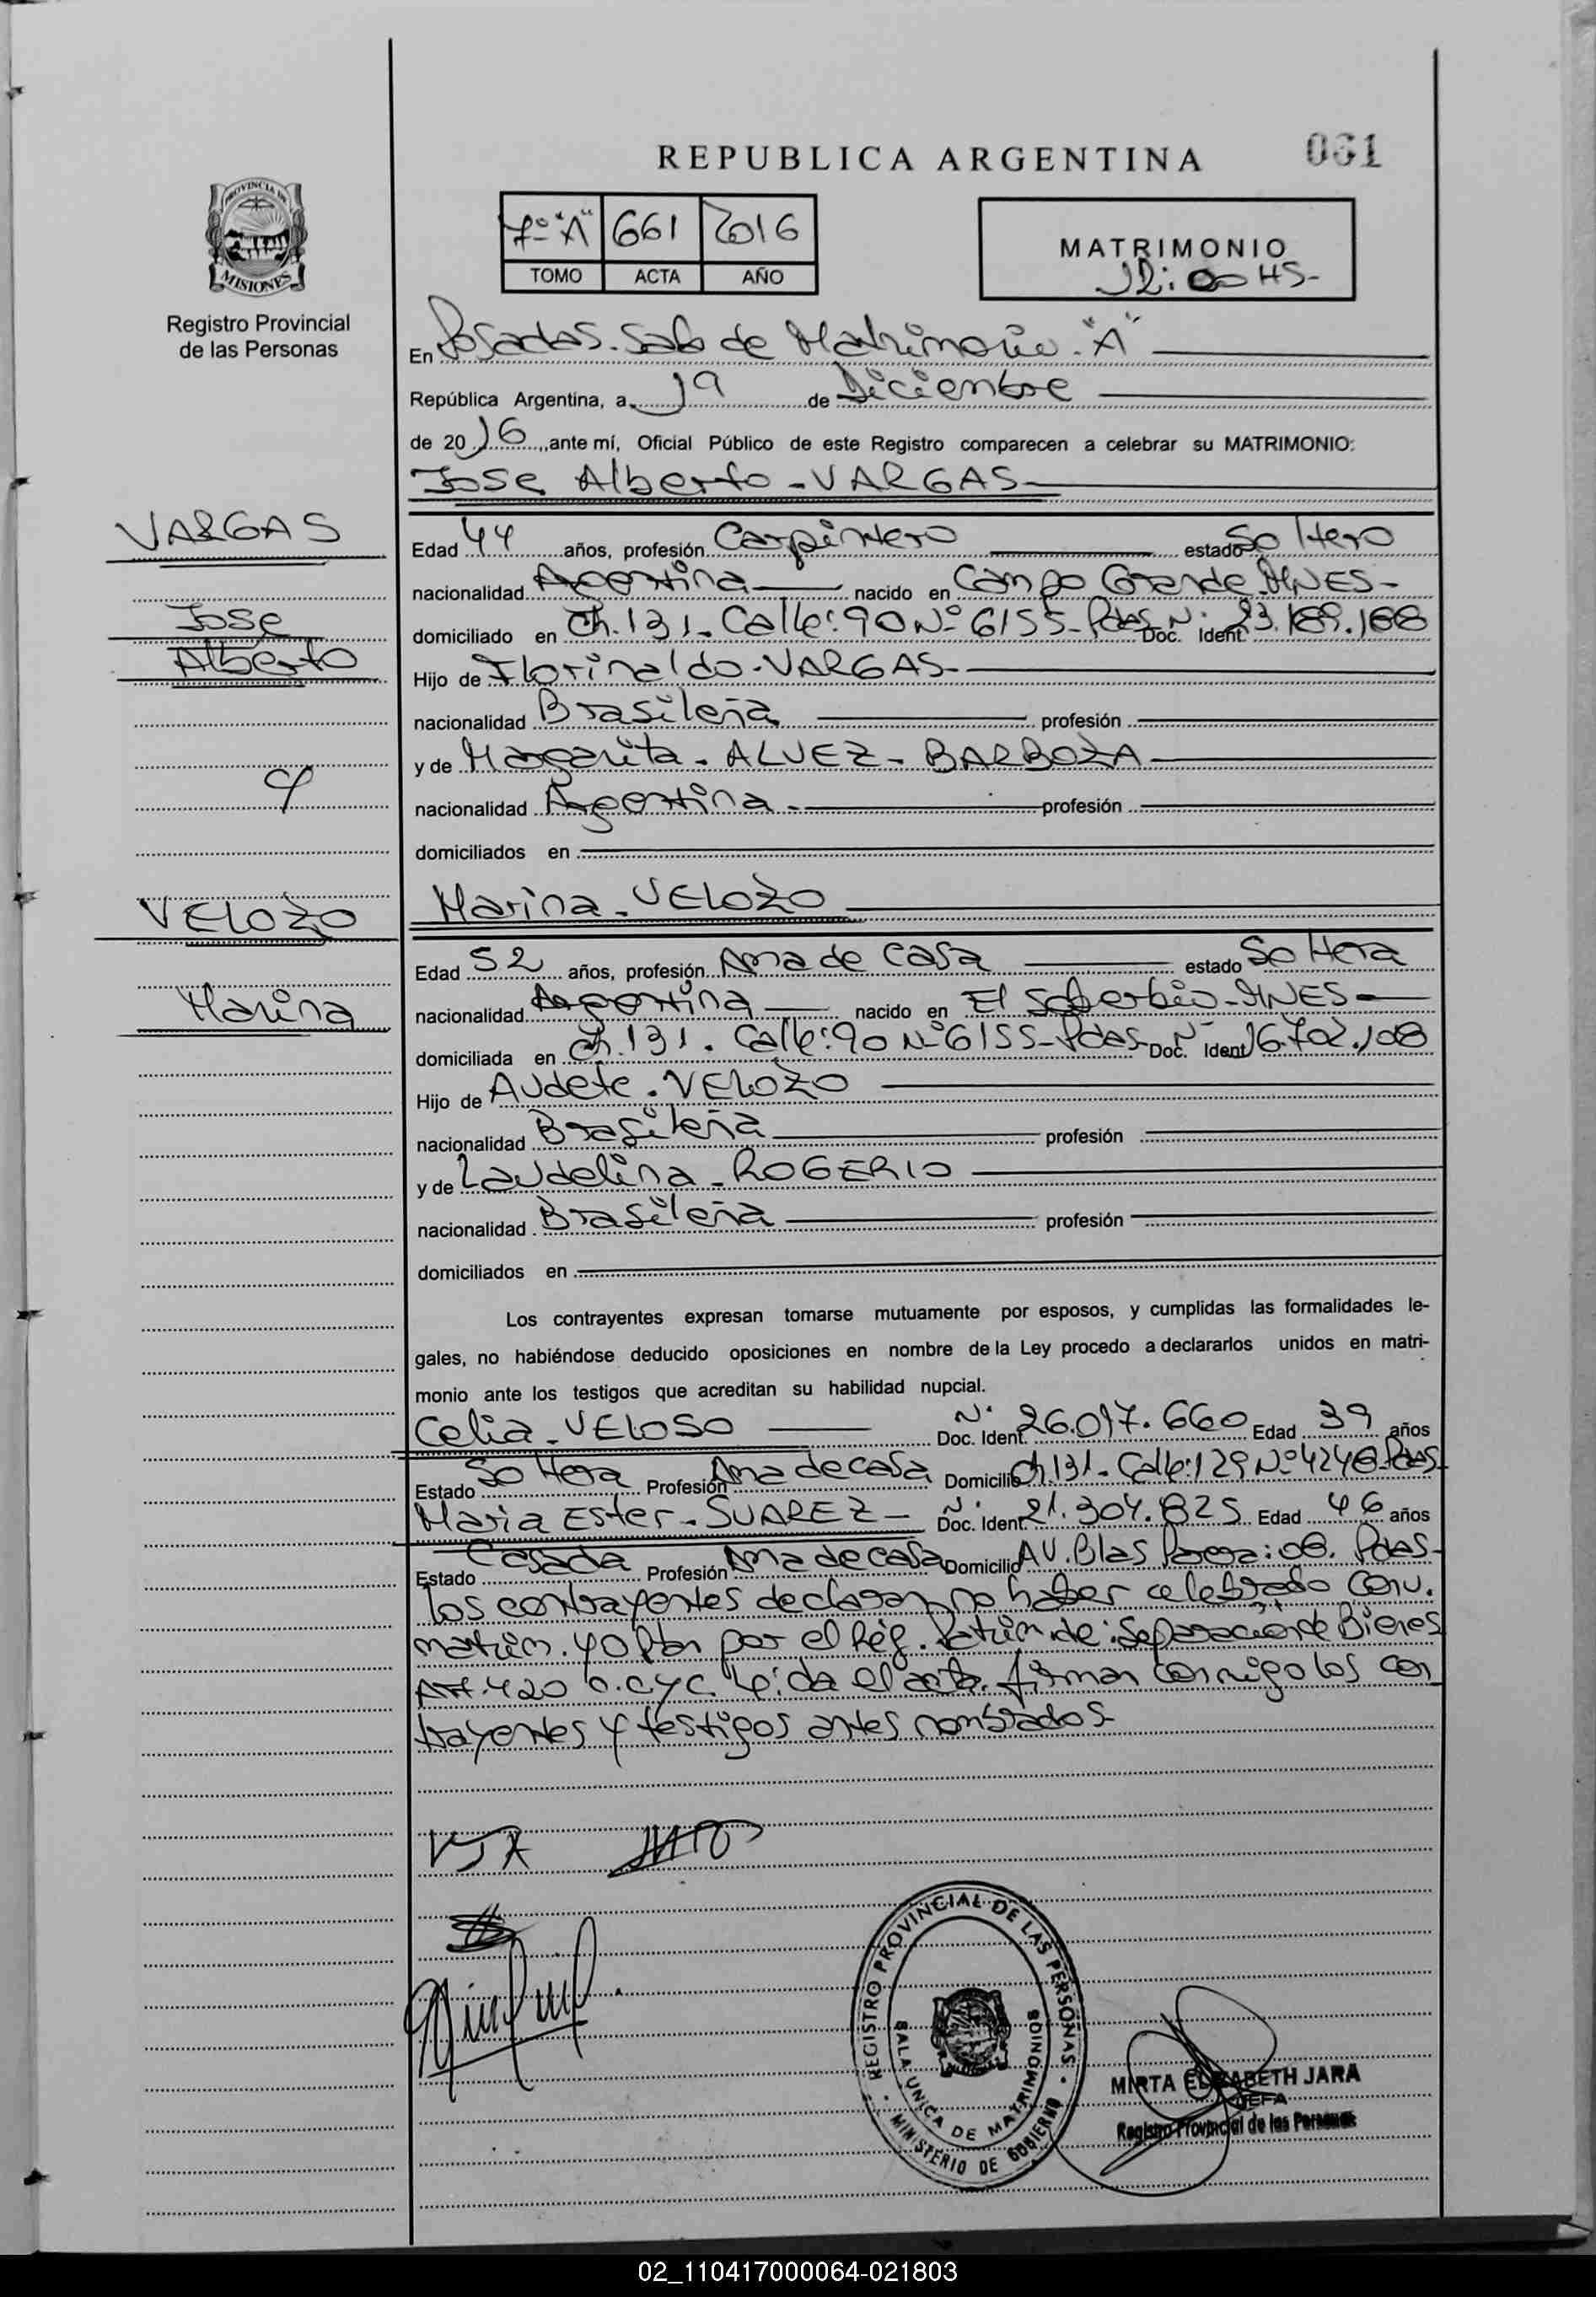 REPUBLICA ARGENTINA
061
PROVINCIA DE
MISIONES
Registro Provincial
de las Personas
7º "A" 661 2016
TOMO ACTA AÑO
MATRIMONIO
12:00 HS-
En Posadas. Sala de Matrimonio. "A"
República Argentina, a 19 de Diciembre
de 2016, ante mí, Oficial Público de este Registro comparecen a celebrar su MATRIMONIO:
Jose Alberto - VARGAS-
VARGAS
Jose
Alberto
Edad 44 años, profesión Carpintero estado Soltero
nacionalidad Argentina nacido en Campo Grande. MNES-
domiciliado en Ch. 131. Calle: 90 Nº 6155- Pdas Doc. Ident. Nº 23.189.168
Hijo de Florinaldo - VARGAS-
nacionalidad Brasileña profesión
y de Margarita. ALVEZ - BARBOZA
nacionalidad Argentina. profesión
domiciliados en
y
VELOZO
Marina
Marina - VELOZO
Edad 52 años, profesión Ama de casa estado Soltera
nacionalidad Argentina nacido en El Soberbio - MNES-
domiciliada en Ch. 131. Calle: 90 Nº 6155- Pdas- Doc. Ident Nº 16.702.108
Hijo de Audete. VELOZO
nacionalidad Brasileña profesión
y de Laudelina - ROGERIO
nacionalidad Brasileña profesión
domiciliados en
Los contrayentes expresan tomarse mutuamente por esposos, y cumplidas las formalidades le-
gales, no habiéndose deducido oposiciones en nombre de la Ley procedo a declararlos unidos en matri-
monio ante los testigos que acreditan su habilidad nupcial.
Celia - VELOSO Doc. Ident. Nº 26.017.660 Edad 39 años
Estado Soltera Profesión Ama de casa Domicilio Ch. 131 - Calle: 129 Nº 4248 - Pdas
Maria Ester - SUAREZ - Doc. Ident. Nº 21.304.825 Edad 46 años
Estado Casada Profesión Ama de casa Domicilio AV. Blas Parera: 08. Pdas-
Los contrayentes declaran no haber celebrado Conv.
matrim. y optan por el Rég. Patrim. de: Separación de Bienes
Art. 420 C.C y C. Leída el acta. firman conmigo los con
trayentes y testigos antes nombrados-
REGISTRO PROVINCIAL DE LAS PERSONAS
MINISTERIO DE GOBIERNO
SALA UNICA DE MATRIMONIOS
MIRTA ELIZABETH JARA
JEFA
Registro Provincial de las Personas
02_110417000064-021803